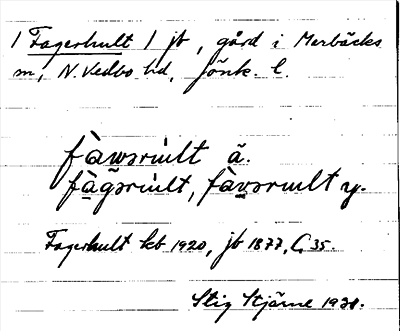 1 Fagerhult 1 jb, gård i Marbäcks
sn, N. Vedbo hd, Jönk. l.
fàwərúlt ä.
fàgərúlt, fàvərult y.
Fagerhult kb 1920, jb 1877, C 35.
Stig Stjärne 1931.